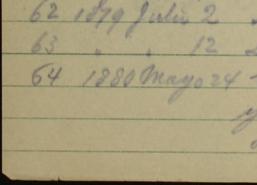 62 1879 Julio 2
63 " " 12
64 1880 Mayo 24